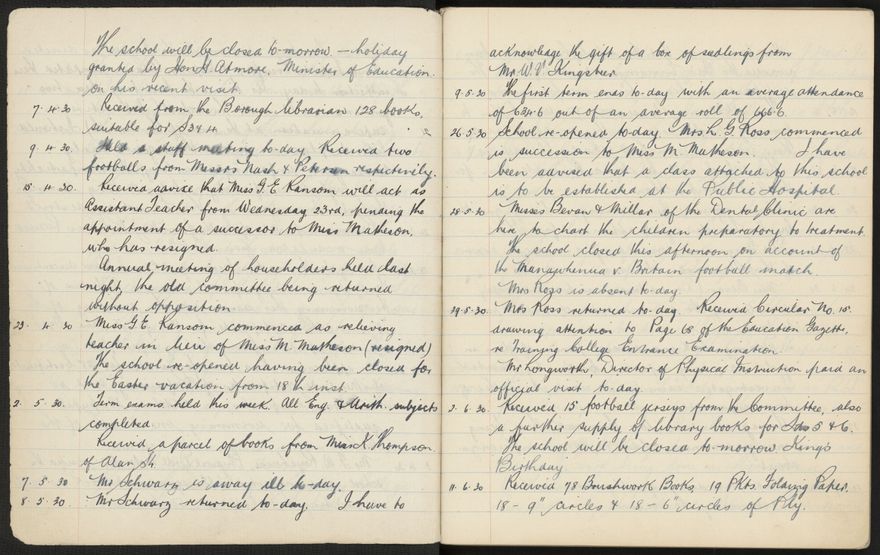 The school will be closed to-morrow. - holiday
granted by Hon H. Atmore, Minister of Education.
on his recent visit.
7. 4. 30 Received from the Borough Librarian 128 books,
suitable for S3 & 4.
9. 4. 30. Held a staff meeting to-day. Received two
footballs from Messrs Nash & Petersen respectively.
15. 4. 30. Received advise that Miss G. E. Ransom will act as
Assistant Teacher from Wednesday 23rd, pending the
appointment of a successor to Miss Matheson,
who has resigned.
Annual meeting of householders held last
night, the old committee being returned
without opposition.
23. 4. 30 Miss G. E. Ransom commenced as relieving
teacher in lieu of Miss M. Matheson (resigned)
The school re-opened having been closed for
the Easter vacation from 18th inst.
2. 5. 30. Term exams held this week. All Eng. & Arith. subjects
completed.
Received a parcel of books from Miss K. Thompson.
of St.
7. 5. 30 Mr Schwarz is away ill to-day.
8. 5. 30. Mr Schwarz returned to-day. I have to
acknowledge the gift of a box of seedlings from
Mr W. V.
9. 5. 30 The first term ends to-day with an average attendance
of 634.6 out of an average roll of 666.6.
26. 5. 30 School re-opened to-day. Mrs L. G. Ross commenced
is succession to Miss M. Matheson. I have
been advised that a class attached to this school
is to be established at the Public Hospital.
28. 5. 30 Misses Bevan & Millar of the Dental Clinic are
here to chart the children preparatory to treatment.
The school closed this afternoon on account of
the v. Britain football match.
Mrs Ross is absent to-day.
29. 5. 30. Mrs Ross returned to-day. Received Circular No. 15.
drawing attention to Page 68 of the Education Gazette,
re Training College Entrance Examination.
Mr Longworth, Director of Physical Instruction paid an
official visit to-day.
2. 6. 30 Received 15 football jerseys from the Committee, also
a further supply of library books for Sds 5 & 6.
The school will be closed to-morrow King's
Birthday
11. 6. 30 Received 78 Brushwork Books. 19 Pkts. Folding Paper.
18 - 9" circles & 18 - 6" circles of Ply.